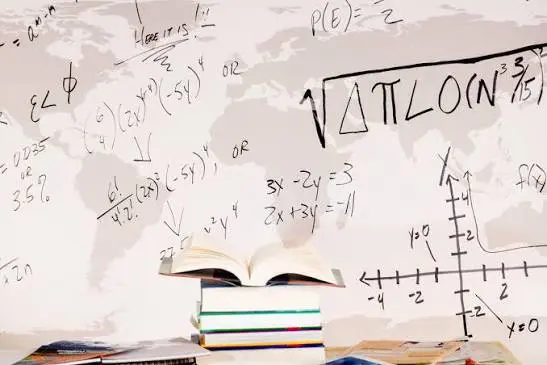 = a^(m-n)
HERE IT IS !!
P(E) = —/2
ε < φ
(6/4)(2x)^(6-4)(-5y)^4 OR
√ΔπLO(N^3 3/15)
= 0.035
OR
3.5%
6!/4!2! (2x)^2(-5y)^4, OR
3x - 2y = 3
2x + 3y = -11
f(x)
y
4
2
y=0
-4 -2 2
-2
x=0
x2n